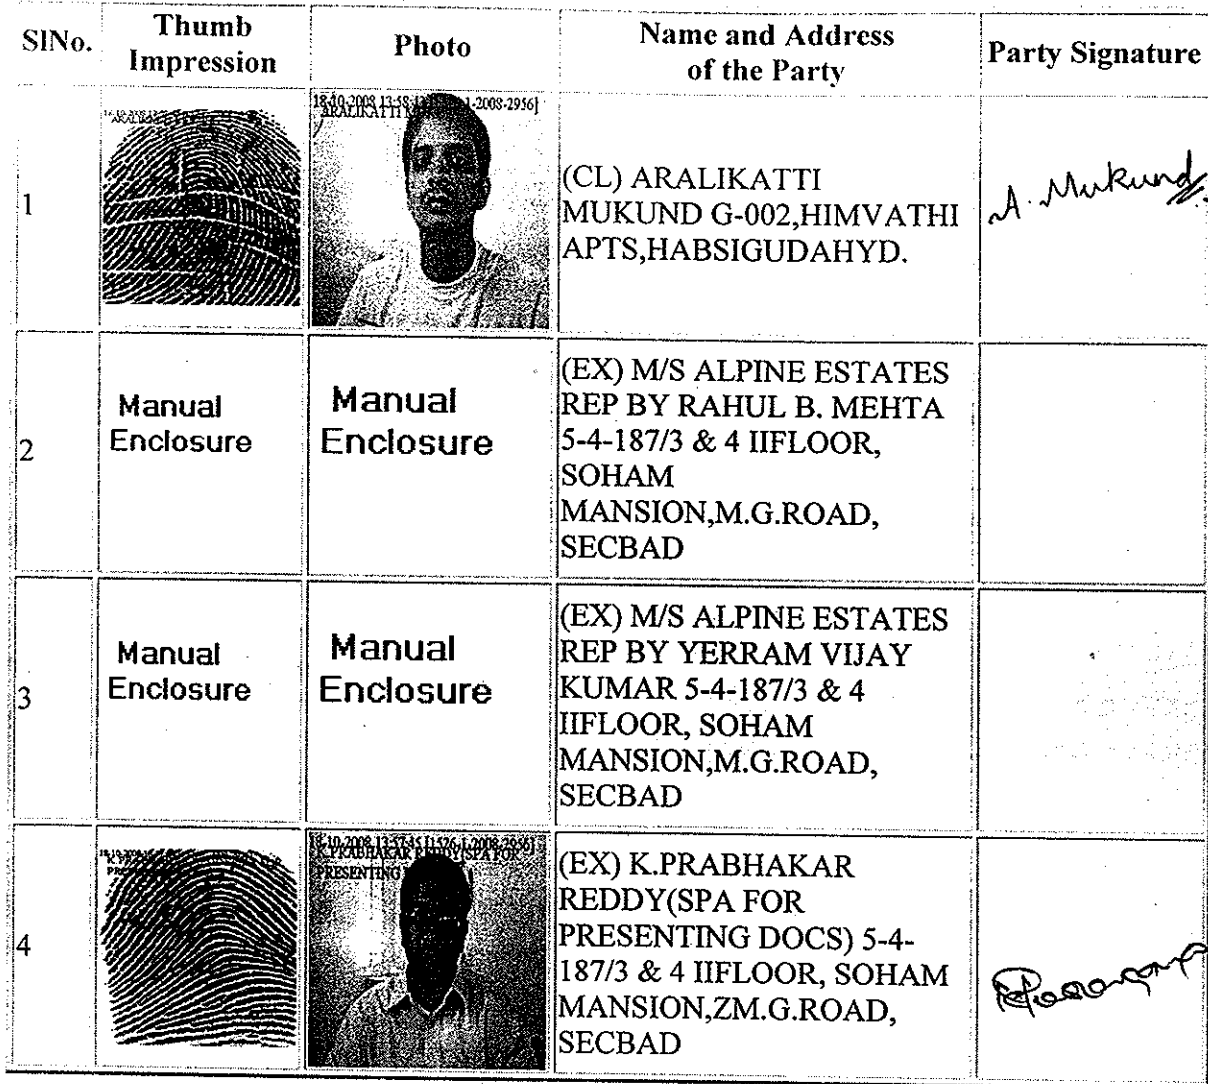 SlNo.
Thumb
Impression
Photo
Name and Address
of the Party
Party Signature
1
18-10-2008 13:58
1-2008-2956]
ARALIKATTI
(CL) ARALIKATTI
MUKUND G-002,HIMVATHI
APTS,HABSIGUDAHYD.
A. Mukund
2
Manual
Enclosure
Manual
Enclosure
(EX) M/S ALPINE ESTATES
REP BY RAHUL B. MEHTA
5-4-187/3 & 4 IIFLOOR,
SOHAM
MANSION,M.G.ROAD,
SECBAD
3
Manual
Enclosure
Manual
Enclosure
(EX) M/S ALPINE ESTATES
REP BY YERRAM VIJAY
KUMAR 5-4-187/3 & 4
IIFLOOR, SOHAM
MANSION,M.G.ROAD,
SECBAD
4
18-10-2008 13:57:45 [1526-1-2008-2956]
K.PRABHAKAR REDDY(SPA FOR
PRESENTING
(EX) K.PRABHAKAR
REDDY(SPA FOR
PRESENTING DOCS) 5-4-
187/3 & 4 IIFLOOR, SOHAM
MANSION,ZM.G.ROAD,
SECBAD